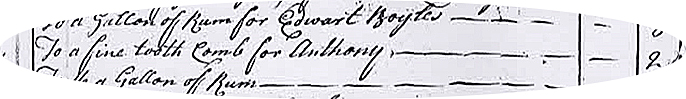 To a Gallon of Rum for Edwart Boyles
To a fine tooth Comb for Anthony 2
a Gallon of Rum